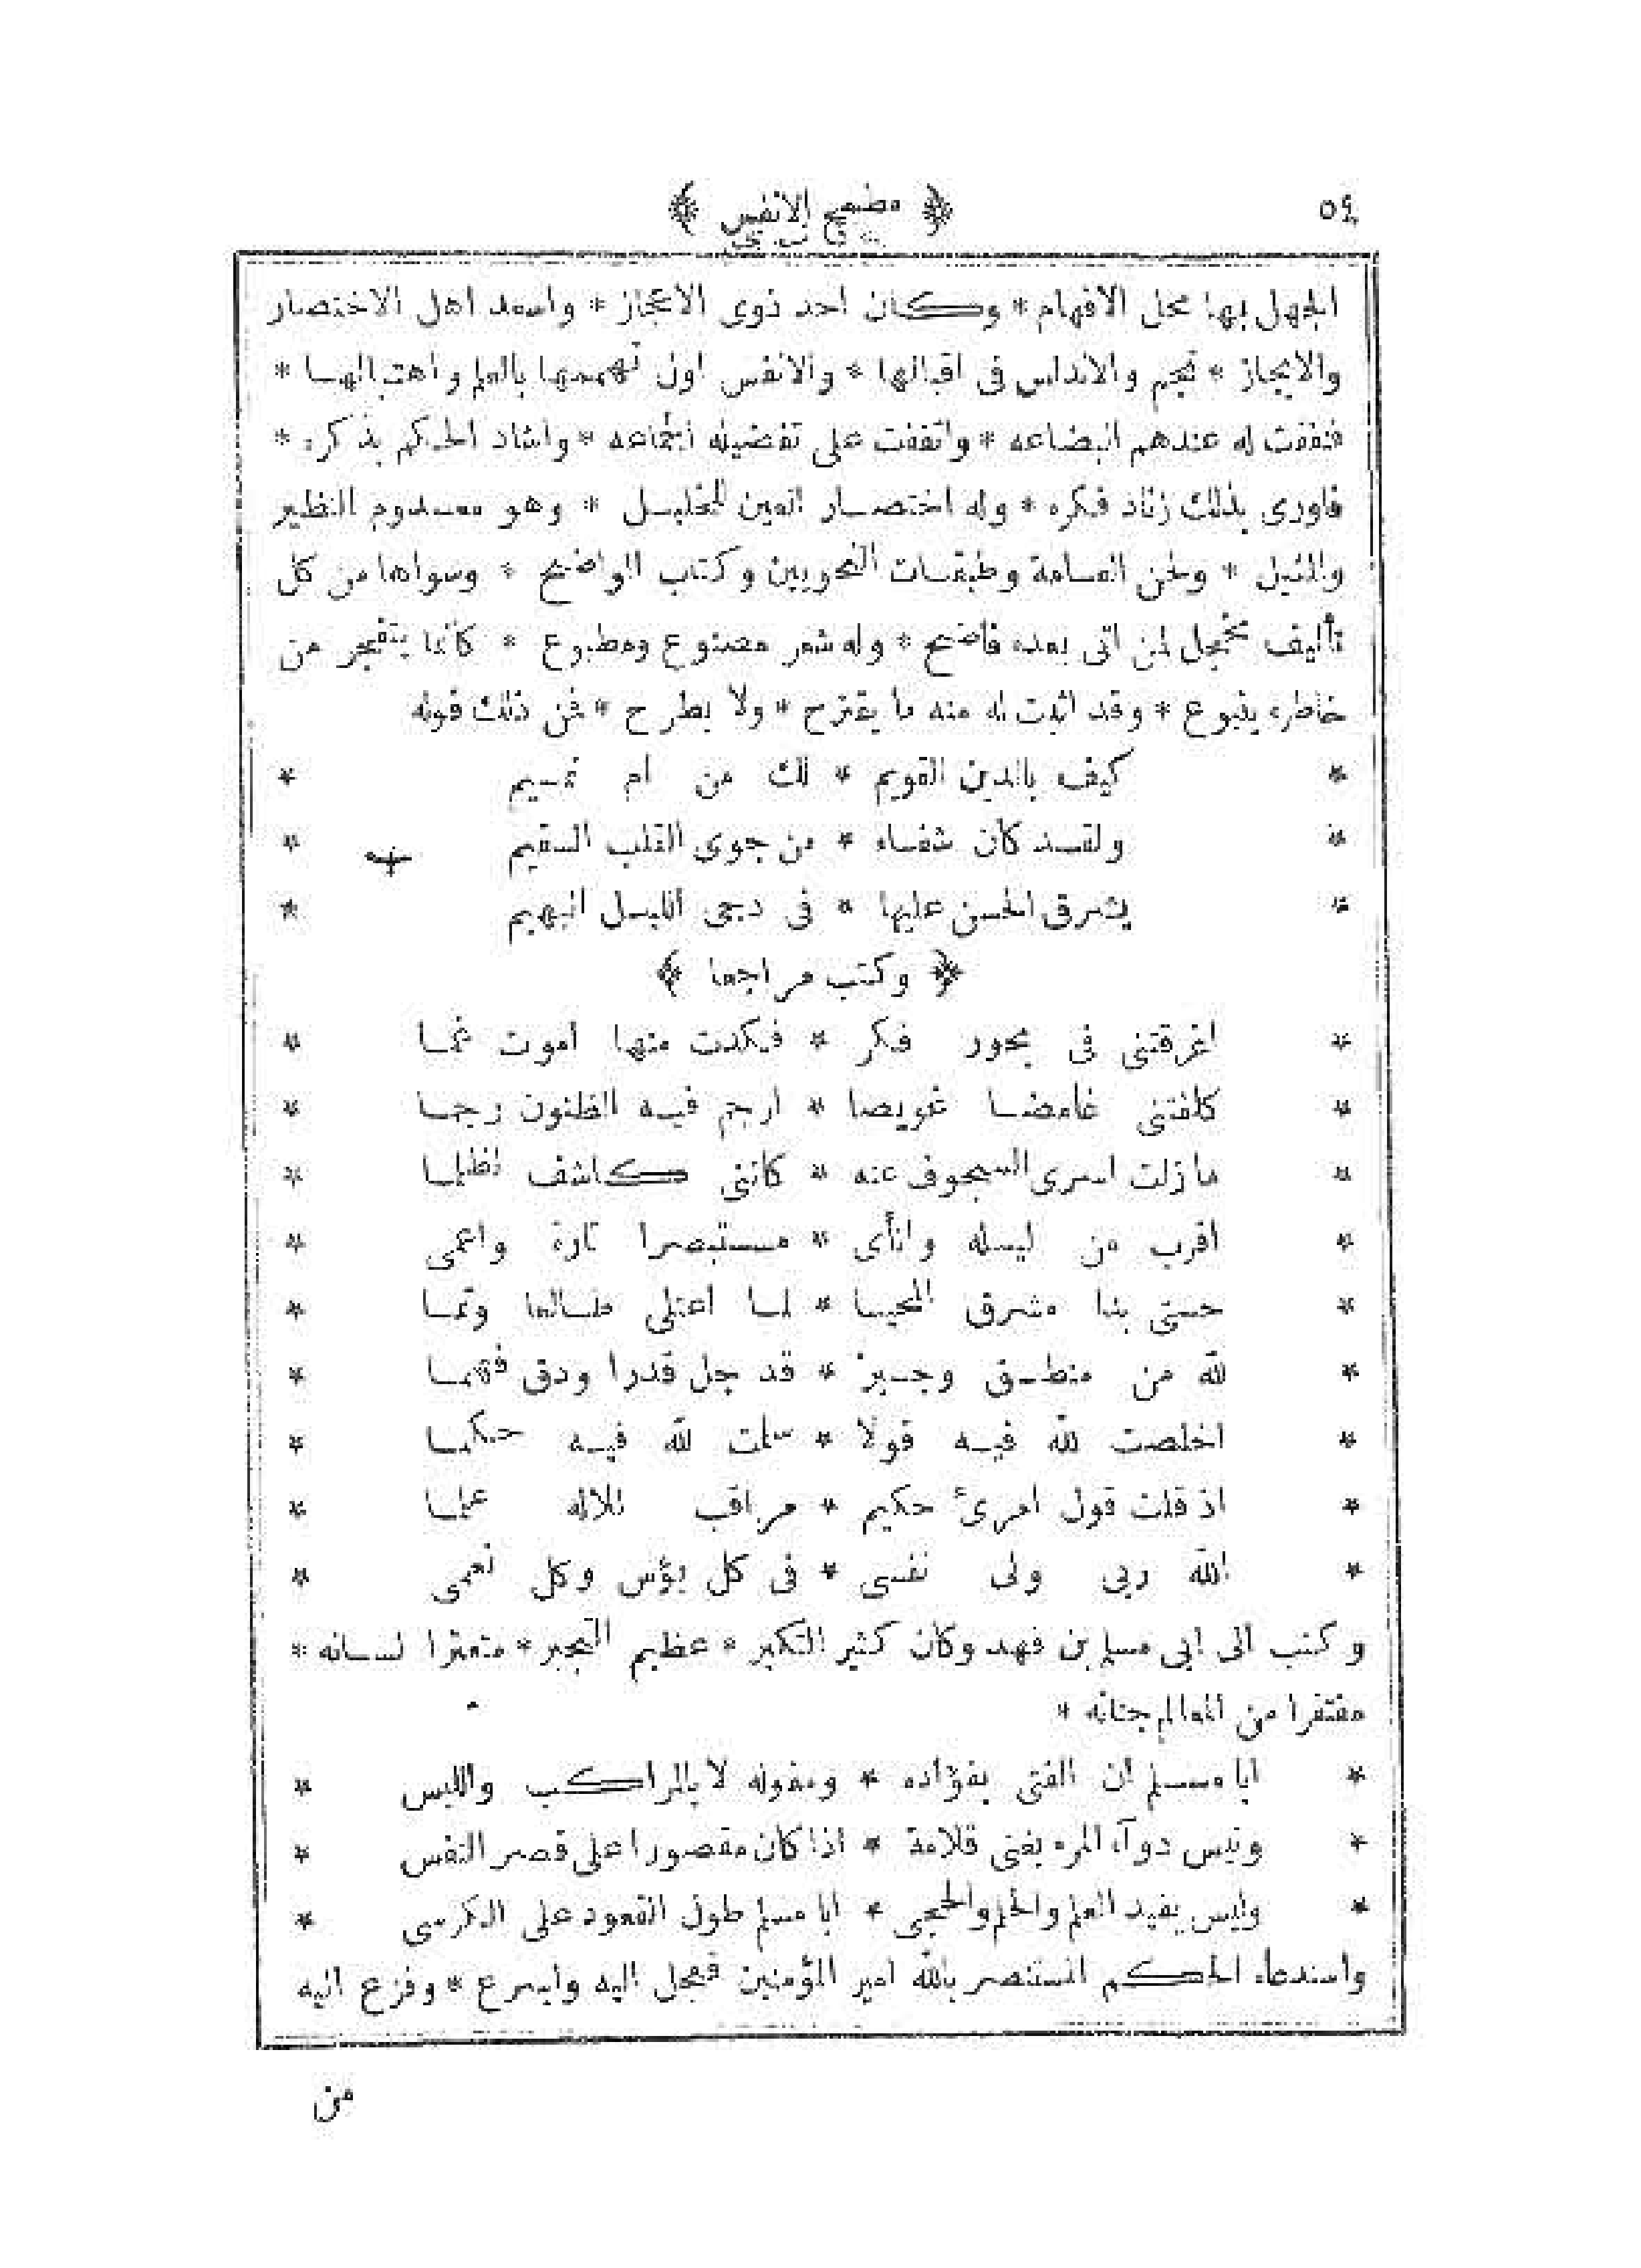 ٥٤ ﴿ مطمح الانفس ﴾
الجهل بها محل الافهام * وكان احد ذوى الاعجاز * واسعد اهل الاختصار
والايجاز * نجم والاندلس فى اقبالها * والانفس اول تهممها بالعلم واهتبالها *
فنفقت له عندهم البضاعه * واتفقت على تفضيله الجماعه * واشاد الحكم بذكره *
فاورى بذلك زناد فكره * وله اختصار العين للخليل * وهو معدوم النظير
والمثيل * ولحن العامة وطبقات النحويين وكتاب الواضح * وسواها من كل
تأليف مخجل لمن اتى بعده فاضح * وله شعر مصنوع ومطبوع * كأنما يتفجر من
خاطره ينبوع * وقد اثبت له منه ما يقترح * ولا يطرح * فمن ذلك قوله
* كيف بالدين القويم * لك من ام تميم *
* ولقد كان شفاء * من جوى القلب السقيم *
* يشرق الحسن عليها * فى دجى الليل البهيم *
﴿ وكتب مراجعا ﴾
* اغرقتنى فى بحور فكر * فكدت منها اموت غما *
* كلفتنى غامضا عويصا * ارجم فيه الظنون رجما *
* ما زلت اسرى السجوف عنه * كاننى كاشف لظلما *
* اقرب من ليله وانأى * مستبصرا تارة واعمى *
* حتى بدا مشرق المحيا * لما اعتلى طالعا وتما *
* لله من منطق وجيز * قد جل قدرا ودق فهما *
* اخلصت لله فيه قولا * سلمت لله فيه حكما *
* اذ قلت قول امرئ حكيم * مراقب للاله علما *
* الله ربى ولى نفسى * فى كل بؤس وكل نعمى *
وكتب الى ابى مسلم بن فهد وكان كثير التكبر * عظيم التجبر * متعثرا لسانه *
مقتفرا من المعالم جنانه *
* ابا مسلم ان الفتى بفؤاده * ومقوله لا بالمراكب واللبس *
* وليس دوآء المرء يغنى قلامة * اذا كان مقصورا على قصر النفس *
* وليس يفيد العلم والحلم والحجى * ابا مسلم طول القعود على الكرسى *
واستدعاه الحكم المستنصر بالله امير المؤمنين فعجل اليه واسرع * وفزع اليه
من